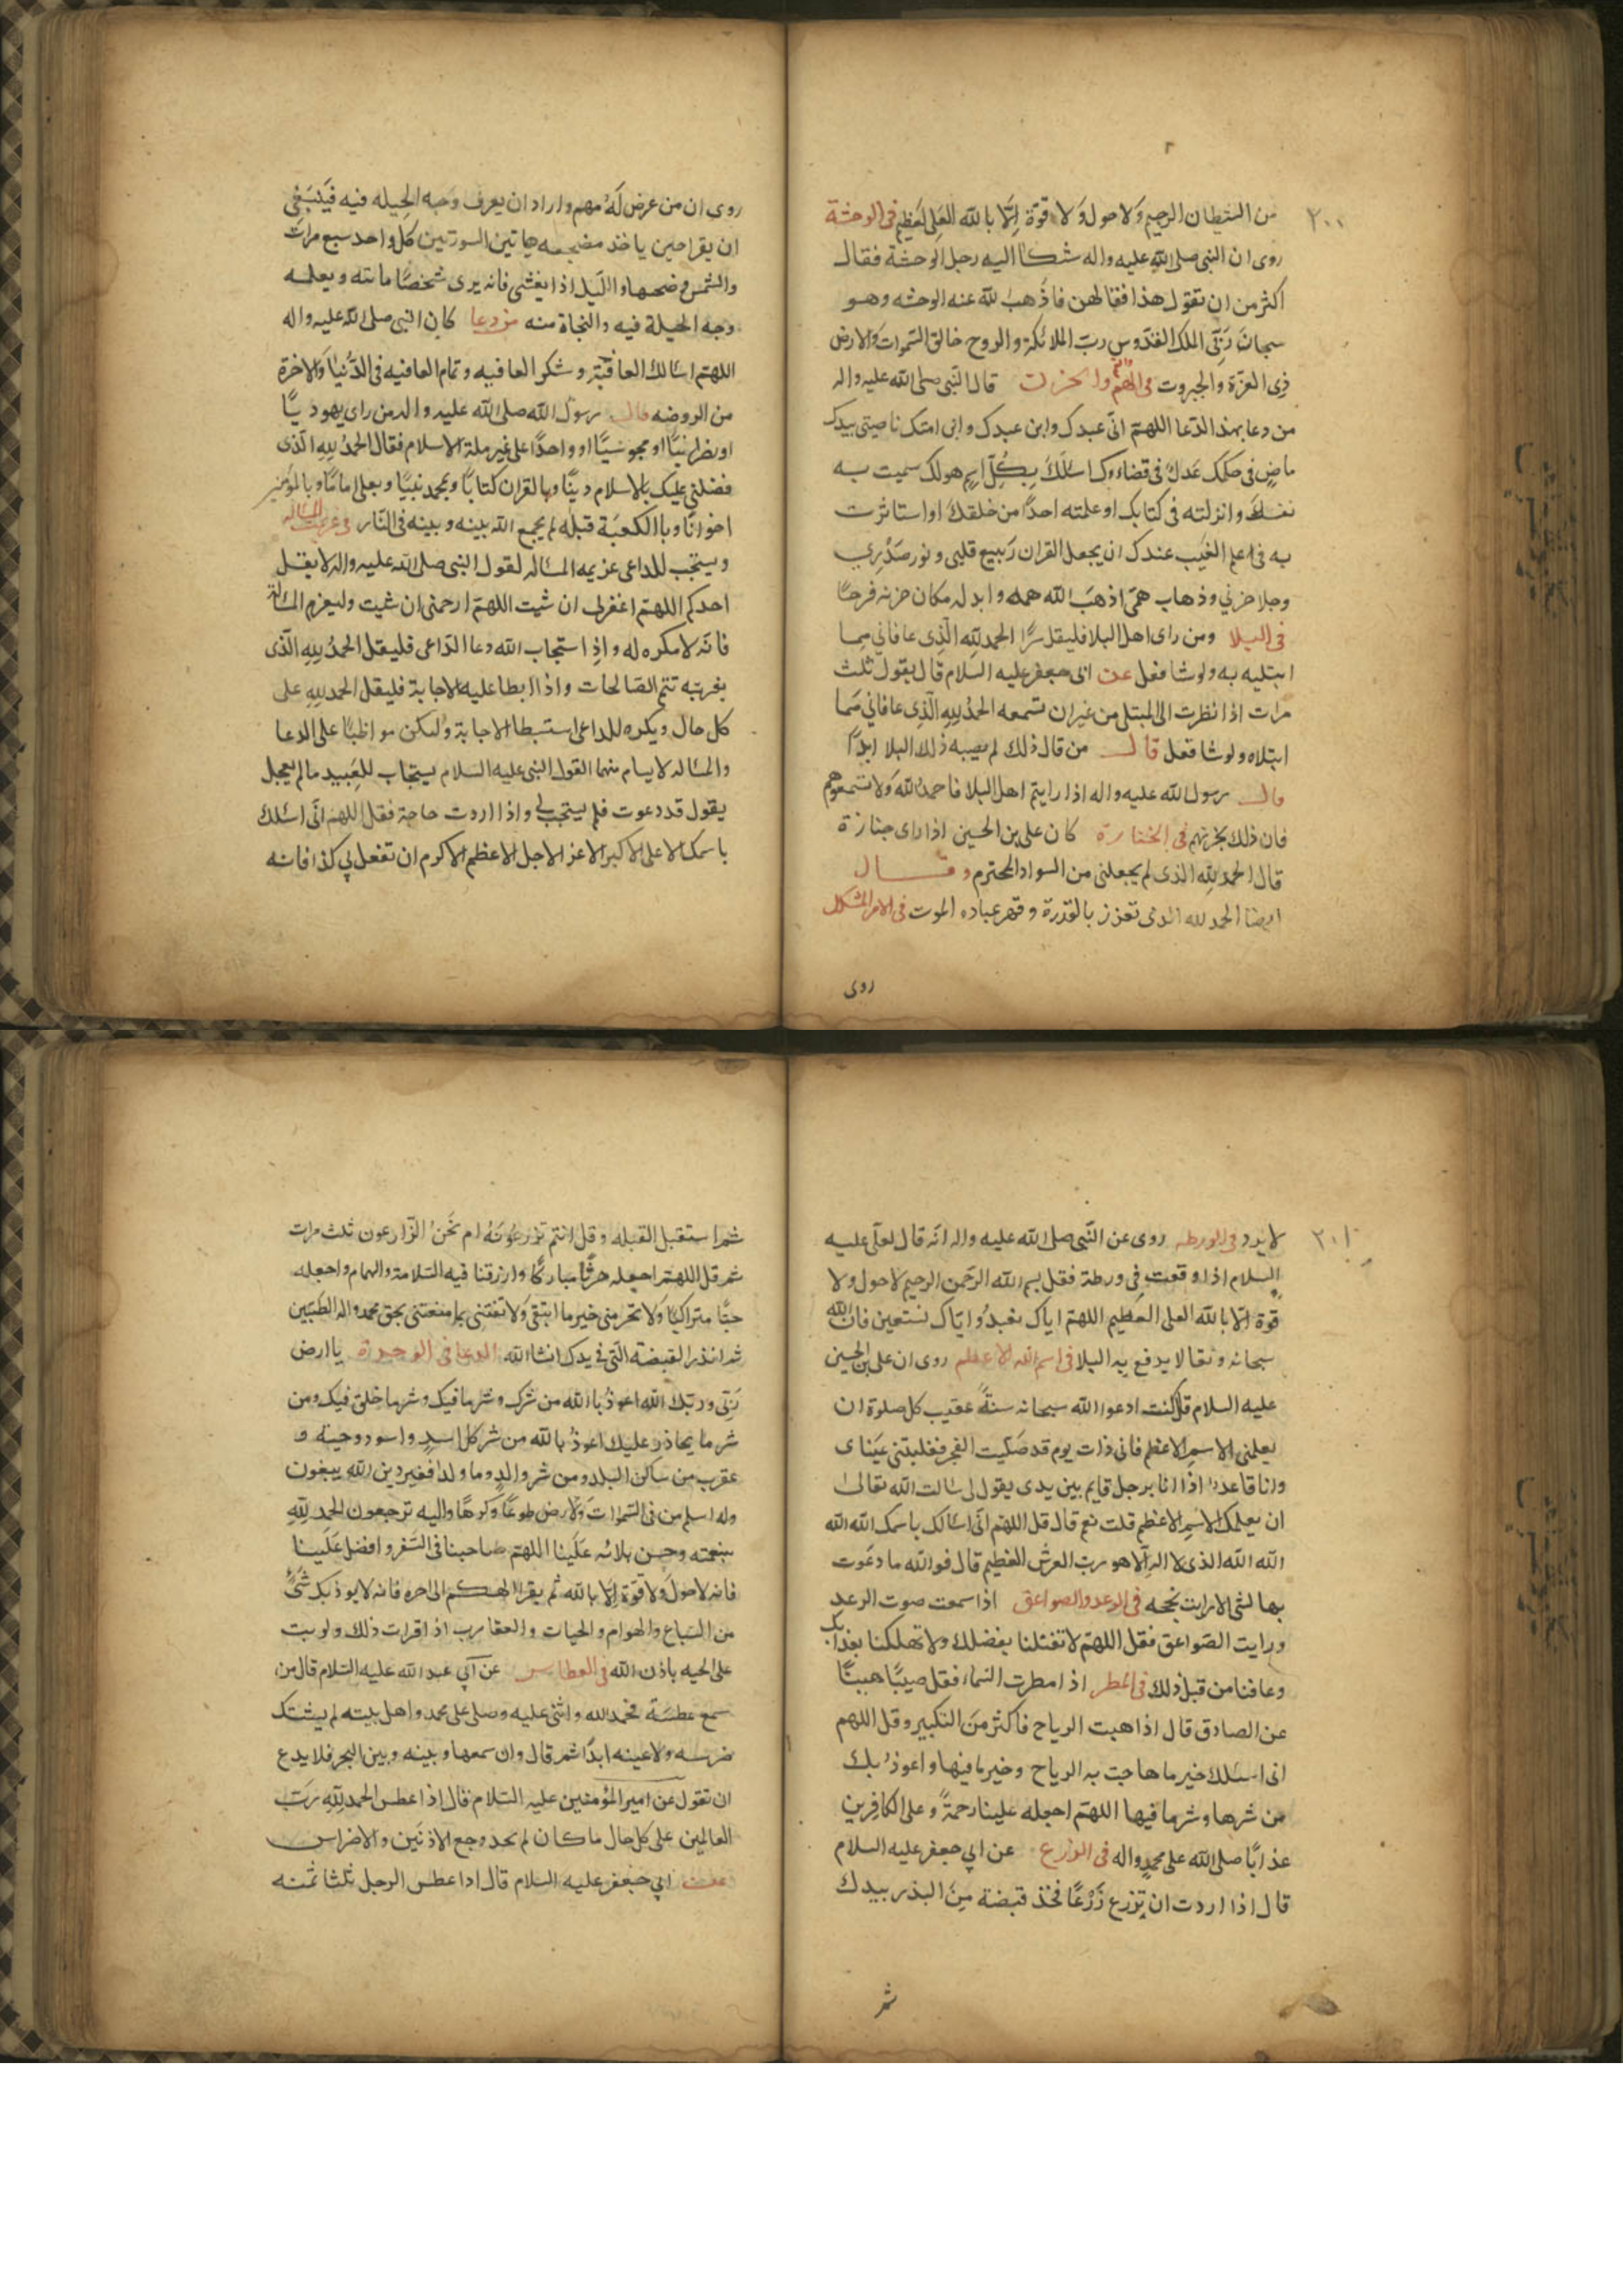 ٢٠٠
من الشيطان الرجيم وَلا حول وَلا قوة اِلّا بالله العلى العظيم فى الوحشة
روى ان النبى صلى الله عليه واله شكا اليه رجل الوَحشة فقال
اكثر من ان تقول هذا فقالهن فاذهب لله عنه الوحشه وهو
سبحان رَبّى الملك القدّوس ربّ الملائكة والروح خالق السّموات وَالارض
ذِى العزّة وَالجبروت فى الهمّ والحزن قال النّبى صلى الله عليه واله
من دعا بهذا الدّعا اللهمّ انّى عبدك وابن عبدك وابن امتك ناصيتى بيدك
ماضٍ فى حكمك عَدلٌ فى قضاءوك اسئلكَ بِكُلِّ اسمٍ هو لك سميت به
نفسكَ وانزلته فى كتابك او علمته احدًا من خلقكَ او استاثرت
به فى علم الغيَب عندك ان يجعل القران رَبيع قلبى ونور صَدْرِي
وجلا حزني وذهاب همّى اذهبَ الله همه وابدله مكان حزنه فرحًا
فى البلا ومن راى اهل البلا فليقل سرًّا الحمد لله الّذِى عافانى مما
ابتليه به ولو شا فعل عن ابى جعفر عليه السّلام قال يقول ثلث
مرات اذا نظرت الى المبتلى من غير ان تسمعه الحمدُ للهِ الّذِى عافانى مما
ابتلاه ولو شا فعل قال من قال ذلك لم يصبه ذلك البلا ابدًا
قال رسول الله عليه واله اذا رايتم اهل البلا فاحمدُ الله وَلا تسمعوهم
فان ذلك يحزنهم فى الجنازة كان على بن الحسين اذا راى جنازة
قال الحمد للهِ الذى لم يجعلنى من السواد المخترم وقال
ايضا الحمد لله الذى تعزز بالقدرة وقهر عباده الموت فى الامر المشكل
روى
روى ان من عرض لَهُ مهم واراد ان يعرف وَجه الحيله فيه فَينبَغى
ان يقرا حين ياخذ مضجعه هاتين السورتين كل واحد سبع مرات
والشمس وضحيها والّيل اذا يغشى فانه يرى شخصًا ماتته ويعلمه
وجه الحيلة فيه والنجاة منه من دعا كان النبى صلى الله عليه واله
اللهمّ اسئالك العافيَة وشكر العافيه وتمام العافيه فى الدّنيا وَالاخرة
من الروضه قال رسول الله صلى الله عليه واله من راى يهوديًّا
او نظرانيًّا او مجوسيًّا او واحدًا على غير ملة الاسلام فقال الحمدُ للهِ الّذى
فضلنى عليك بالاسلام دينًا وبالقران كتابًا وبمحمد نبيًا وبعلى امامًا وبالمؤمنين
اخوانًا وبالكعبَة قبله لم يجمع الله بينه وبينه فى النّار فى عزيمت المسّاله
ويستحب للداعى عزيمه المسّاله لقول النبى صلى الله عليه واله لا يقل
احدكم اللهمّ اغفرلى ان شيت اللهمّ ارحمنى ان شيت وليعزم المسّالة
فانّه لا مكره له واذِ استجاب الله دعا الدّاعى فليقل الحمدُ للهِ الّذى
بعزته تتم الصّالحات واذا ابطا عليه الاجابة فليقل الحمد للهِ على
كل حال ويكره للداعى استبطا الاجابة وليكن مواظبًا على الدعا
والمسّاله لا يسام منهما لقول النبى عليه السّلام يستجاب للعَبيد مالم يعجل
يقول قد دعوت فلم يستجب لي واذا اردت حاجة فقل اللهمّ انّى اسئلك
باسمك الاعلى الاكبر الاعز الاجل الاعظم الاكرم ان تفعل بي كذا فانه
٢٠١
لا يرد فى الورطه روى عن النّبى صلى الله عليه واله انّه قال لعلّى عليه
السلام اذا وقعت فى ورطة فقل بسم الله الرّحمن الرحيم لا حول ولا
قوة الّا بالله العلى العظيم اللهمّ اياك نعبدُ واياك نستعين فان الله
سبحانه وتعالا يدفع به البلا فى اسم الله الاعظم روى ان على بن الحسين
عليه السلام قال كنت ادعوا الله سبحانه سنَةً عقيب كل صلوة ان
يعلمنى الاسم الاعظم فانى ذات يوم قد صَلّيت الفجر فغلبتنى عَيناى
وانا قاعد اذا انا برجل قايم بين يدى يقول لى سالت الله تعالى
ان يعلمك الاسمِ الاعظم قلت نعم قال قل اللهمّ انّى اسئالك باسمك الله الله
الله الله الذى لا اله الّا هو ربّ العرش العظيم قال فوالله ما دعَوت
بها لشئ الا رايت نجحه فى الرعد والصواعق اذا سمعت صوت الرعد
ورايت الصّواعق فقل اللهمّ لا تقتلنا بغضبك ولا تهلكنا بعذابك
وعافنا من قبل ذلك فى المطر اذا مطرت السّماء فقل صيّبًا هنيئًا
عن الصادق قال اذا هبت الرياح فاكثر منَ التكبير وقل اللهم
انى اسئلك خير ما هاجت به الرياح وخير ما فيها واعوذُ بك
من شرها وشر ما فيها اللهمّ اجعله علينا رحمةً وعلى الكافِرين
عذابًا صلى الله على محمدٍ واله فى الزرع عن ابي جعفر عليه السلام
قال اذا اردت ان تزرع زَرْعًا فخذ قبضة مِنَ البذر بيدك
ثم
ثم استقبل القبله وقل انتم تزرعُونَهُ ام نَحنُ الزّارعون ثلث مرات
ثم قل اللهمّ اجعله حرثًا مباركًا وارزقنا فيه السّلامة والتمام واجعله
حبًّا متراكبًا وَلا تحرمنى خير ما ابتغى وَلا تفتنى بما منعتنى بحق محمد واله الطّيبين
ثم ابذر القبضة الّتى في يدك انشا الله الدعا فى الوحدة يا ارض
رَبّى وربّك الله اعوذُ بالله من شرك وشر ما فيك وشر ما خلق فيك ومن
شر ما يحاذر عليك اعوذُ بالله من شر كل اسدٍ واسود وحية و
عقرب من ساكن البلد ومن شر والدٍ وما ولد افغير دين الله يبغون
وله اسلم من فى السّموات وَالارض طوعًا وَكرهًا واليه ترجعون الحمد للهِ
بنعمته وحسن بلائه علَينا اللهمّ صاحبنا فى السَّفر وافضل عَلَينا
فانه لا حولَ ولا قوّة اِلّا بالله ثم يقرا الهكم الى اخره فانه لا يوذيك شَئٌ
من السّباع والهوام والحيات والعقارب اذا قرات ذلك ولو بت
على الحيه باذن الله فى العطاس عن ابي عبد الله عليه السّلام قال من
سمع عطسَة فحمد الله واثنى عليه وصلى على محمد واهل بيته لم يشتك
ضرسه ولا عينه ابدًا ثم قال وان سمعها وبينه وبين البحر فلا يدع
ان تقول عن امير المؤمنين عليه السّلام قال اذا عطس الحمد للهِ رَبّ
العالمين على كل حال ما كان لم يجد وجع الاذنين والاضراس
عن ابي جعفر عليه السلام قال اذا عطس الرجل ثلثا ثمنه